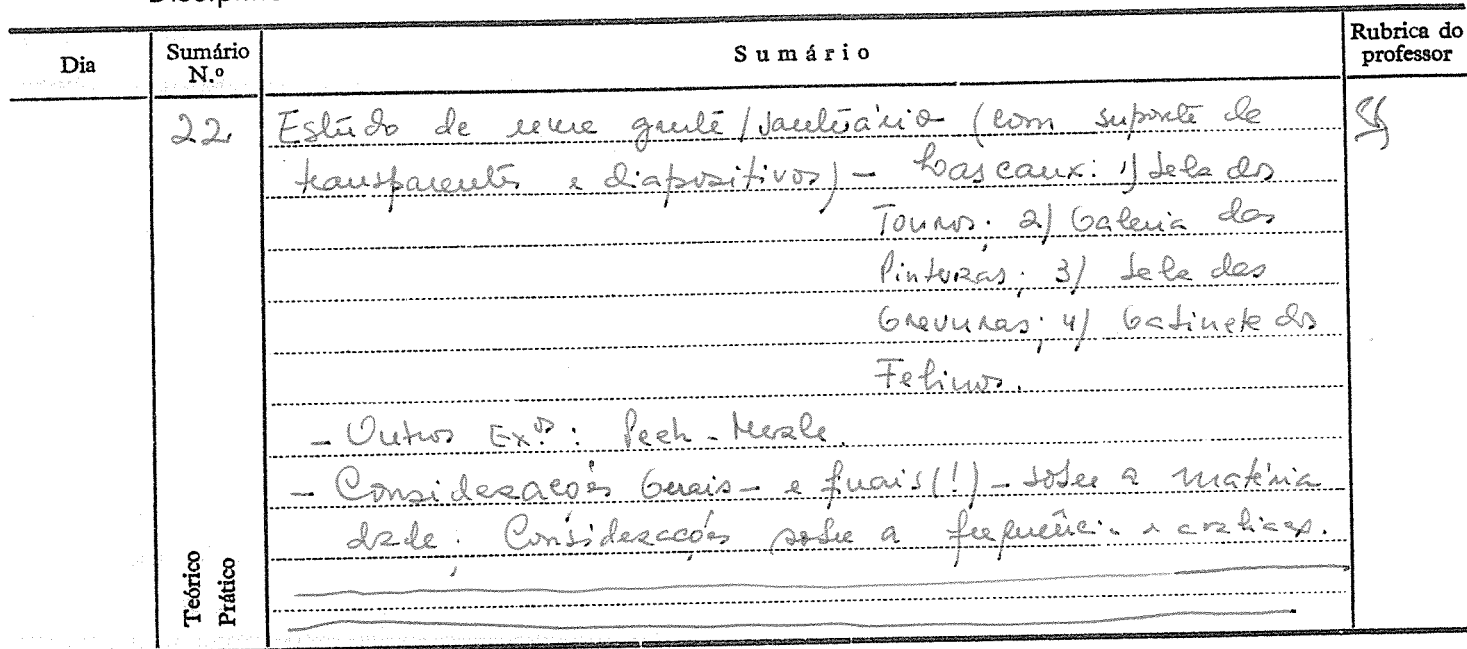 Dia Sumário N.º Sumário Rubrica do professor
22 Estudo de uma gruta/santuário (com suporte de
transparentes e diapositivos) – Lascaux: 1) Sala dos
Touros; 2) Galeria das
Pinturas; 3) Sala das
Gravuras; 4) Gabinete dos
Felinos.
– Outros Ex.os: Pech-Merle.
– Considerações Gerais – e finais (!) – sobre a matéria
dada; Considerações sobre a frequência e
Teórico
Prático